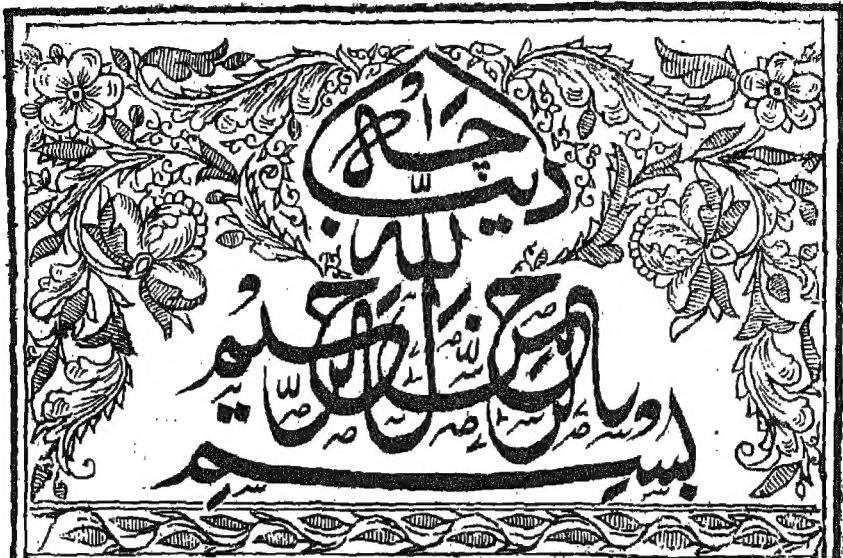 دیباچہ
بسم الله الرحمن الرحيم